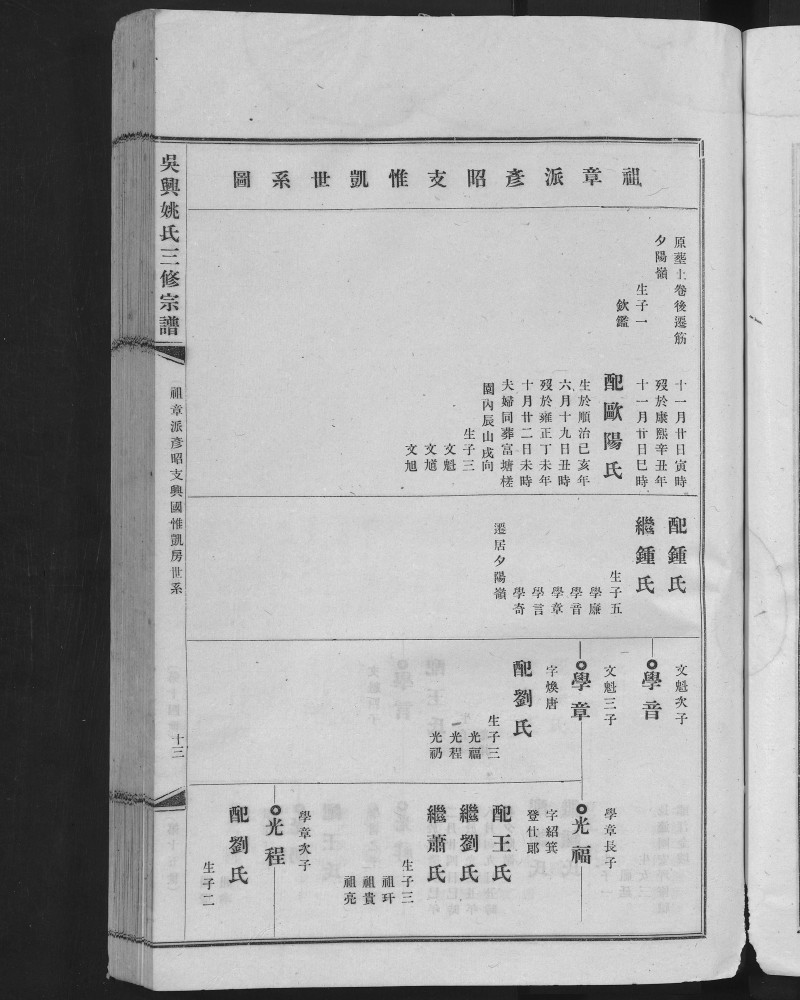 祖章派彥昭支惟凱世系圖
原塟土卷後遷筋
夕陽嶺
生子一
欽鑑
十一月廿日寅時
歿於康熙辛丑年
十一月廿日巳時
配歐陽氏
生於順治己亥年
六月十九日丑時
歿於雍正丁未年
十月廿二日未時
夫婦同葬富塘槎
園內辰山戌向
生子三
文魁
文旭
配鍾氏
繼鍾氏
生子五
學廉
學音
學章
學言
學奇
遷居夕陽嶺
文魁次子
學音
文魁三子
學章
字煥唐
配劉氏
生子三
光福
光程
光礽
學章長子
光福
字紹箕
登仕郎
配王氏
繼劉氏
繼蕭氏
生子三
祖玕
祖貴
祖亮
學章次子
光程
配劉氏
生子二
吳興姚氏三修宗譜
祖章派彥昭支興國惟凱房世系
十三